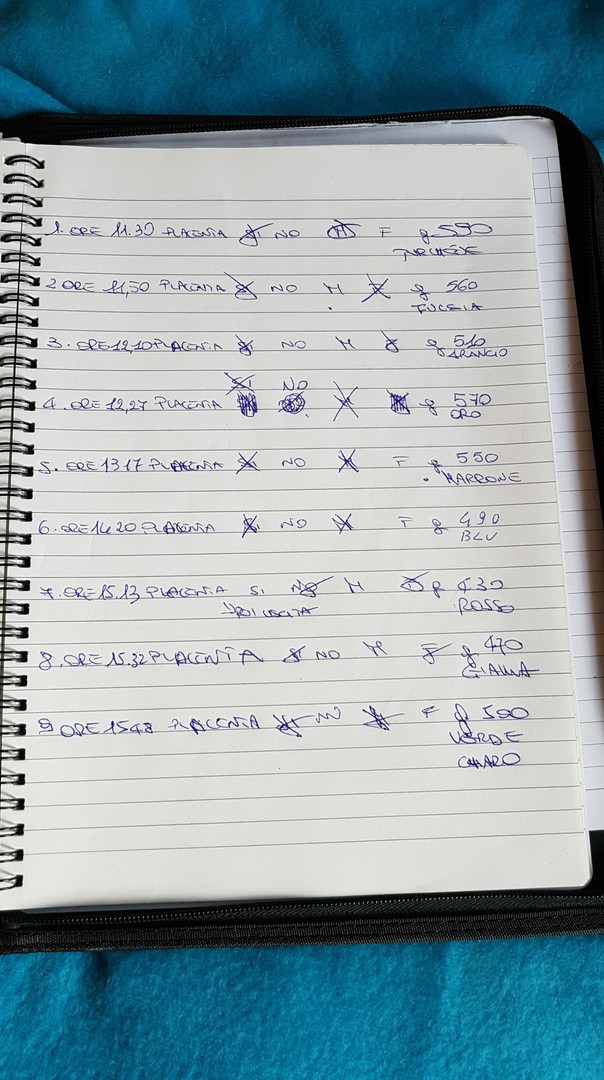 1. ORE 11.30 PLACENTA SI NO M F g 590
TURCHESE
2 ORE 11,50 PLACENTA SI NO M F g 560
FUCSIA
3. ORE 12,10 PLACENTA SI NO M F g 510
ARANCIO
SI NO
4. ORE 12,27 PLACENTA M g 570
ORO
5. ORE 1317 PLACENTA SI NO M F g 550
MARRONE
6. ORE 14 20 PLACENTA SI NO M F g 490
BLU
7. ORE 15.13 PLACENTA SI NO M F g 430
POI USCITA ROSSO
8. ORE 15.32 PLACENTA SI NO M F g 470
GIALLA
9 ORE 1548 PLACENTA SI NO M F g 500
VERDE
CHIARO